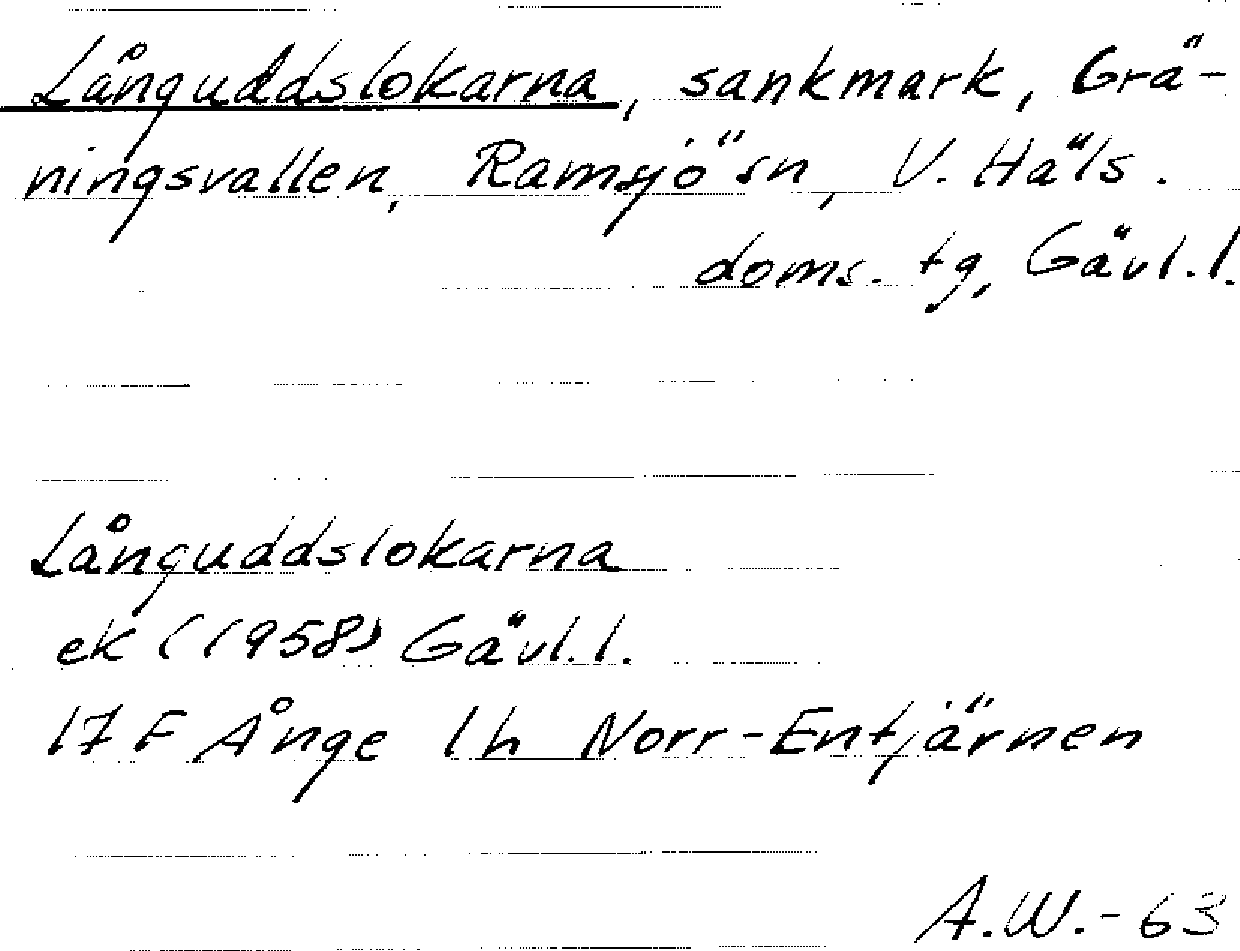 Långuddslokarna, sankmark, Grä-
ningsvallen, Ramsjö sn, V. Häls.
doms. tg, Gävl.l.
Långuddslokarna
ek (1958) Gävl.l.
17 F Ånge 1h Norr-Entjärnen
A.W.-63